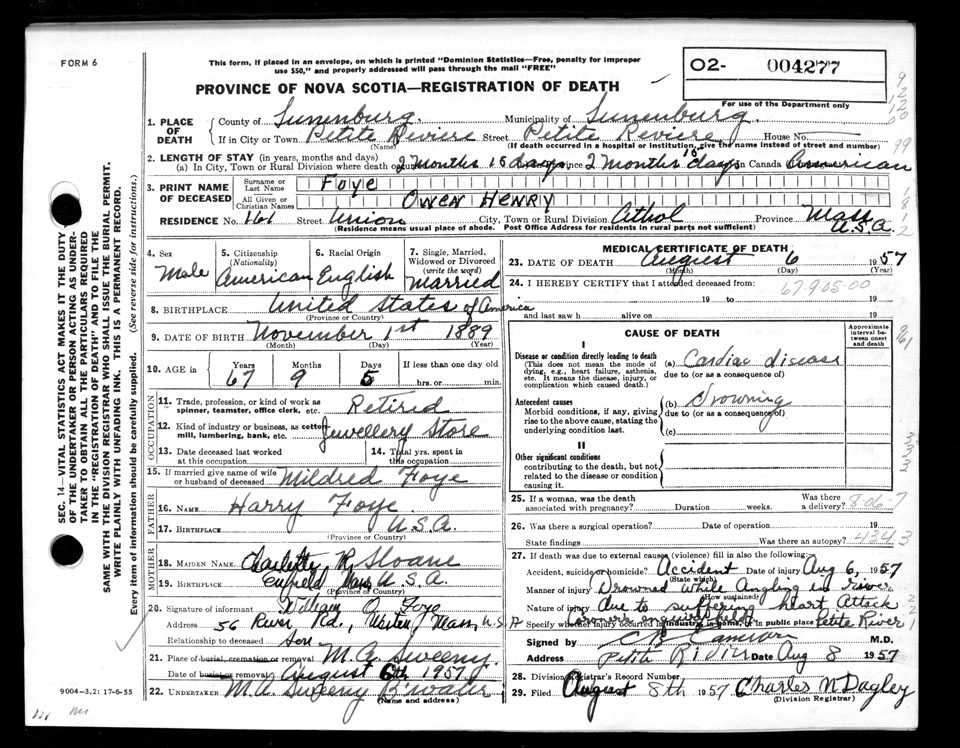 FORM 6
This form, if placed in an envelope, on which is printed "Dominion Statistics—Free, penalty for improper
use $50," and properly addressed will pass through the mail "FREE"
O2- 004277
For use of the Department only
PROVINCE OF NOVA SCOTIA—REGISTRATION OF DEATH
1. PLACE OF DEATH County of Lunenburg. Municipality of Lunenburg.
If in City or Town Petite Riviere Street Petite Riviere House No.
(Name) (If death occurred in a hospital or institution, give the name instead of street and number)
2. LENGTH OF STAY (in years, months and days)
(a) In City, Town or Rural Division where death 2 Months 15 days 2 months 15 days in Canada American
3. PRINT NAME OF DECEASED Surname or Last Name Foye
All Given or Christian Names Owen Henry
RESIDENCE No. 161 Street Union City, Town or Rural Division Athol Province Mass U.S.A.
(Residence means usual place of abode. Post Office Address for residents in rural parts not sufficient)
4. Sex Male
5. Citizenship (Nationality) American
6. Racial Origin English
7. Single, Married, Widowed or Divorced (write the word) Married
8. BIRTHPLACE United States of America
(Province or Country)
9. DATE OF BIRTH November 1st 1889
(Month) (Day) (Year)
10. AGE in Years 67 Months 9 Days 5 If less than one day old hrs. or min.
OCCUPATION
11. Trade, profession, or kind of work as spinner, teamster, office clerk, etc. Retired
12. Kind of industry or business, as cotton mill, lumbering, bank, etc. Jewellery Store
13. Date deceased last worked at this occupation
14. Total yrs. spent in this occupation
15. If married give name of wife or husband of deceased Mildred Foye
FATHER
16. NAME Harry Foye.
17. BIRTHPLACE U.S.A.
(Province or Country)
MOTHER
18. MAIDEN NAME Charlotte R. Sloane
19. BIRTHPLACE Enfield Mass U.S.A.
(Province or Country)
20. Signature of informant William O. Foye
Address 56 River Rd., Mass, U.S.A
Relationship to deceased Son
21. Place of burial, cremation or removal M.A. Sweeny.
Date of burial or removal August 6th 1957
22. UNDERTAKER M.A. Sweeny B'water
(Name and address)
9004—3.2: 17-6-55
MEDICAL CERTIFICATE OF DEATH
23. DATE OF DEATH August 6 1957
(Month) (Day) (Year)
24. I HEREBY CERTIFY that I attended deceased from:
679.05-00
19 to 19
and last saw h alive on 19
CAUSE OF DEATH
Approximate interval between onset and death
I
Disease or condition directly leading to death
(This does not mean the mode of dying, e.g., heart failure, asthenia, etc. It means the disease, injury, or complication which caused death.)
(a) Cardiac disease
due to (or as a consequence of)
Antecedent causes
Morbid conditions, if any, giving rise to the above cause, stating the underlying condition last.
(b) Drowning
due to (or as a consequence of)
(c)
II
Other significant conditions
contributing to the death, but not related to the disease or condition causing it.
25. If a woman, was the death associated with pregnancy? Duration weeks. Was there a delivery? 806-7
26. Was there a surgical operation? Date of operation 19
State findings Was there an autopsy? 4343
27. If death was due to external causes (violence) fill in also the following:
Accident, suicide or homicide? Accident Date of injury Aug 6, 1957
(State which)
Manner of injury Drowned while Angling in river
(How sustained)
Nature of injury due to suffering heart Attack
Specify whether injury occurred in industry, in home, or in public place Petite River
Signed by C B Cameron M.D.
Address Petite Riviere Date Aug 8 1957
28. Division Registrar's Record Number
29. Filed August 8th 1957 Charles N Dagley
(Division Registrar)
SEC. 14—VITAL STATISTICS ACT MAKES IT THE DUTY
OF THE UNDERTAKER OR PERSON ACTING AS UNDER-
TAKER TO OBTAIN ALL THE PARTICULARS REQUIRED
IN THE "REGISTRATION OF DEATH" AND TO FILE THE
SAME WITH THE DIVISION REGISTRAR WHO SHALL ISSUE THE BURIAL PERMIT.
WRITE PLAINLY WITH UNFADING INK. THIS IS A PERMANENT RECORD.
Every item of information should be carefully supplied. (See reverse side for instructions.)